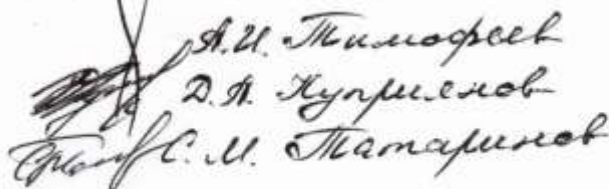 А.И. Тимофеев
Д.А. Куприянов
С.М. Татаринов